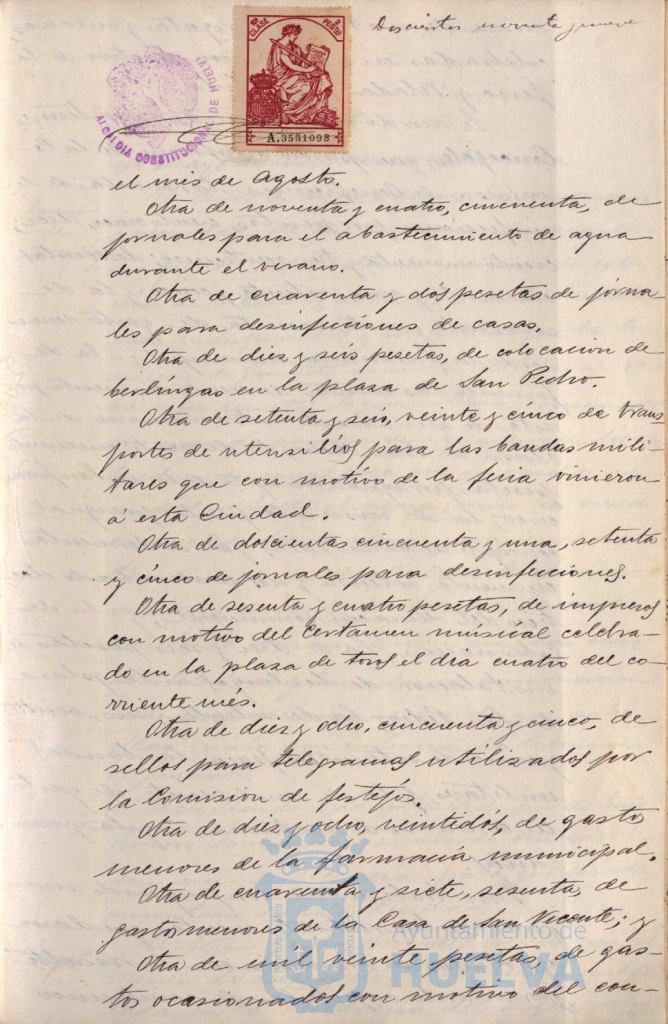 Doscientos noventa y nueve
CLASE
PESTAS
A.3531098
ALCALDIA CONSTITUCIONAL DE HUELVA
el més de Agosto.
Otra de noventa y cuatro, cincuenta, de
jornales para el abastecimiento de agua
durante el verano.
Otra de cuarenta y dós pesetas de jorna-
les para desinfecciones de casas.
Otra de diez y seis pesetas, de colocacion de
berlingas en la plaza de San Pedro.
Otra de setenta y seis, veinte y cinco de trans-
portes de utensilios para las bandas mili-
tares que con motivo de la feria vinieron
á esta Ciudad.
Otra de doscientas cincuenta y una, setenta
y cinco de jornales para desinfecciones.
Otra de sesenta y cuatro pesetas, de impresos
con motivo del Certamen musical celebra-
do en la plaza de toros el dia cuatro del co-
rriente més.
Otra de diez y ocho, cincuenta y cinco, de
sellos para telegramas utilizados por
la Comision de festejos.
Otra de diez y ocho, veintidós, de gastos
menores de la farmacia municipal.
Otra de cuarenta y siete, sesenta, de
gastos menores de la Casa de San Vicente; y
Otra de mil veinte pesetas, de gas-
tos ocasionados con motivo del con-
Ayuntamiento de
HUELVA